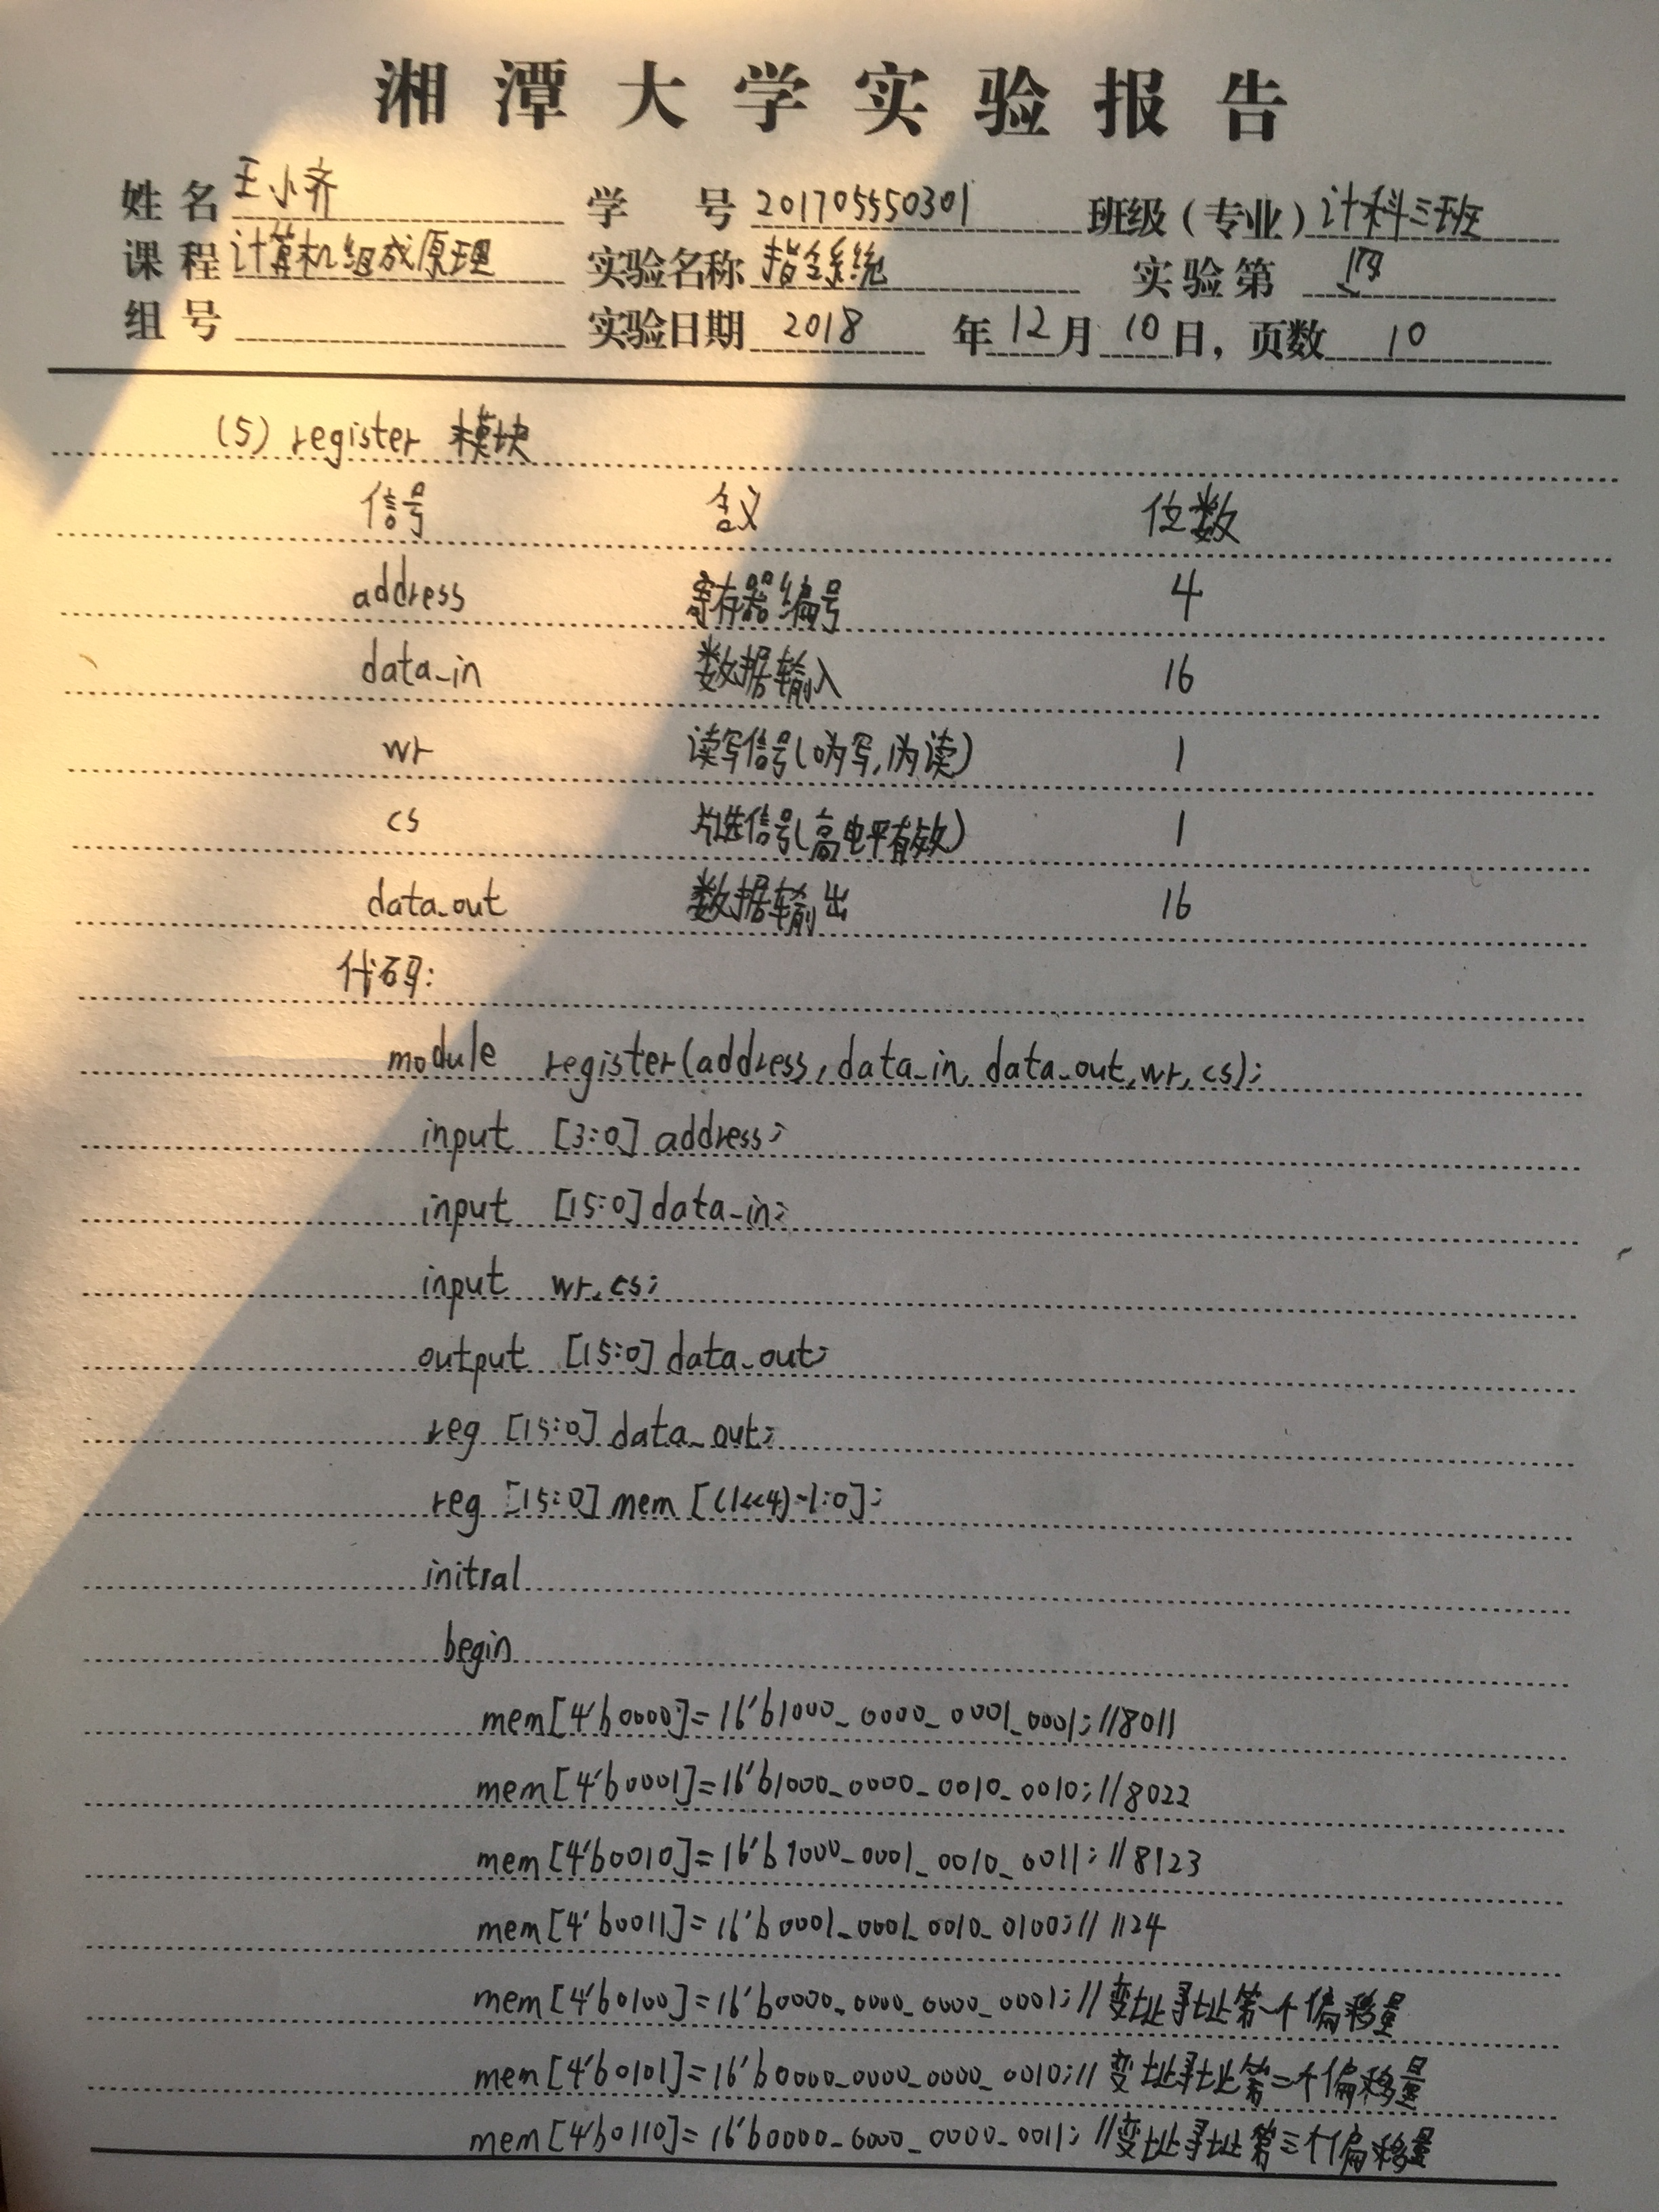 湘潭大学实验报告
姓名 王小齐 学号 201705550301 班级(专业) 计科三班
课程 计算机组成原理 实验名称 指令系统 实验第 四
组号 实验日期 2018 年 12 月 10 日, 页数 10
(5) register 模块
信号 含义 位数
address 寄存器编号 4
data_in 数据输入 16
wr 读写信号(0为写,1为读) 1
cs 片选信号(高电平有效) 1
data_out 数据输出 16
代码:
module register(address, data_in, data_out, wr, cs);
input [3:0] address;
input [15:0] data_in;
input wr, cs;
output [15:0] data_out;
reg [15:0] data_out;
reg [15:0] mem [(1<<4)-1:0];
initial
begin
mem[4'b0000]=16'b1000_0000_0001_0001; //8011
mem[4'b0001]=16'b1000_0000_0010_0010; //8022
mem[4'b0010]=16'b1000_0001_0010_0011; //8123
mem[4'b0011]=16'b0001_0001_0010_0100; //1124
mem[4'b0100]=16'b0000_0000_0000_0001; //变址寻址第一个偏移量
mem[4'b0101]=16'b0000_0000_0000_0010; //变址寻址第二个偏移量
mem[4'b0110]=16'b0000_0000_0000_0011; //变址寻址第三个偏移量